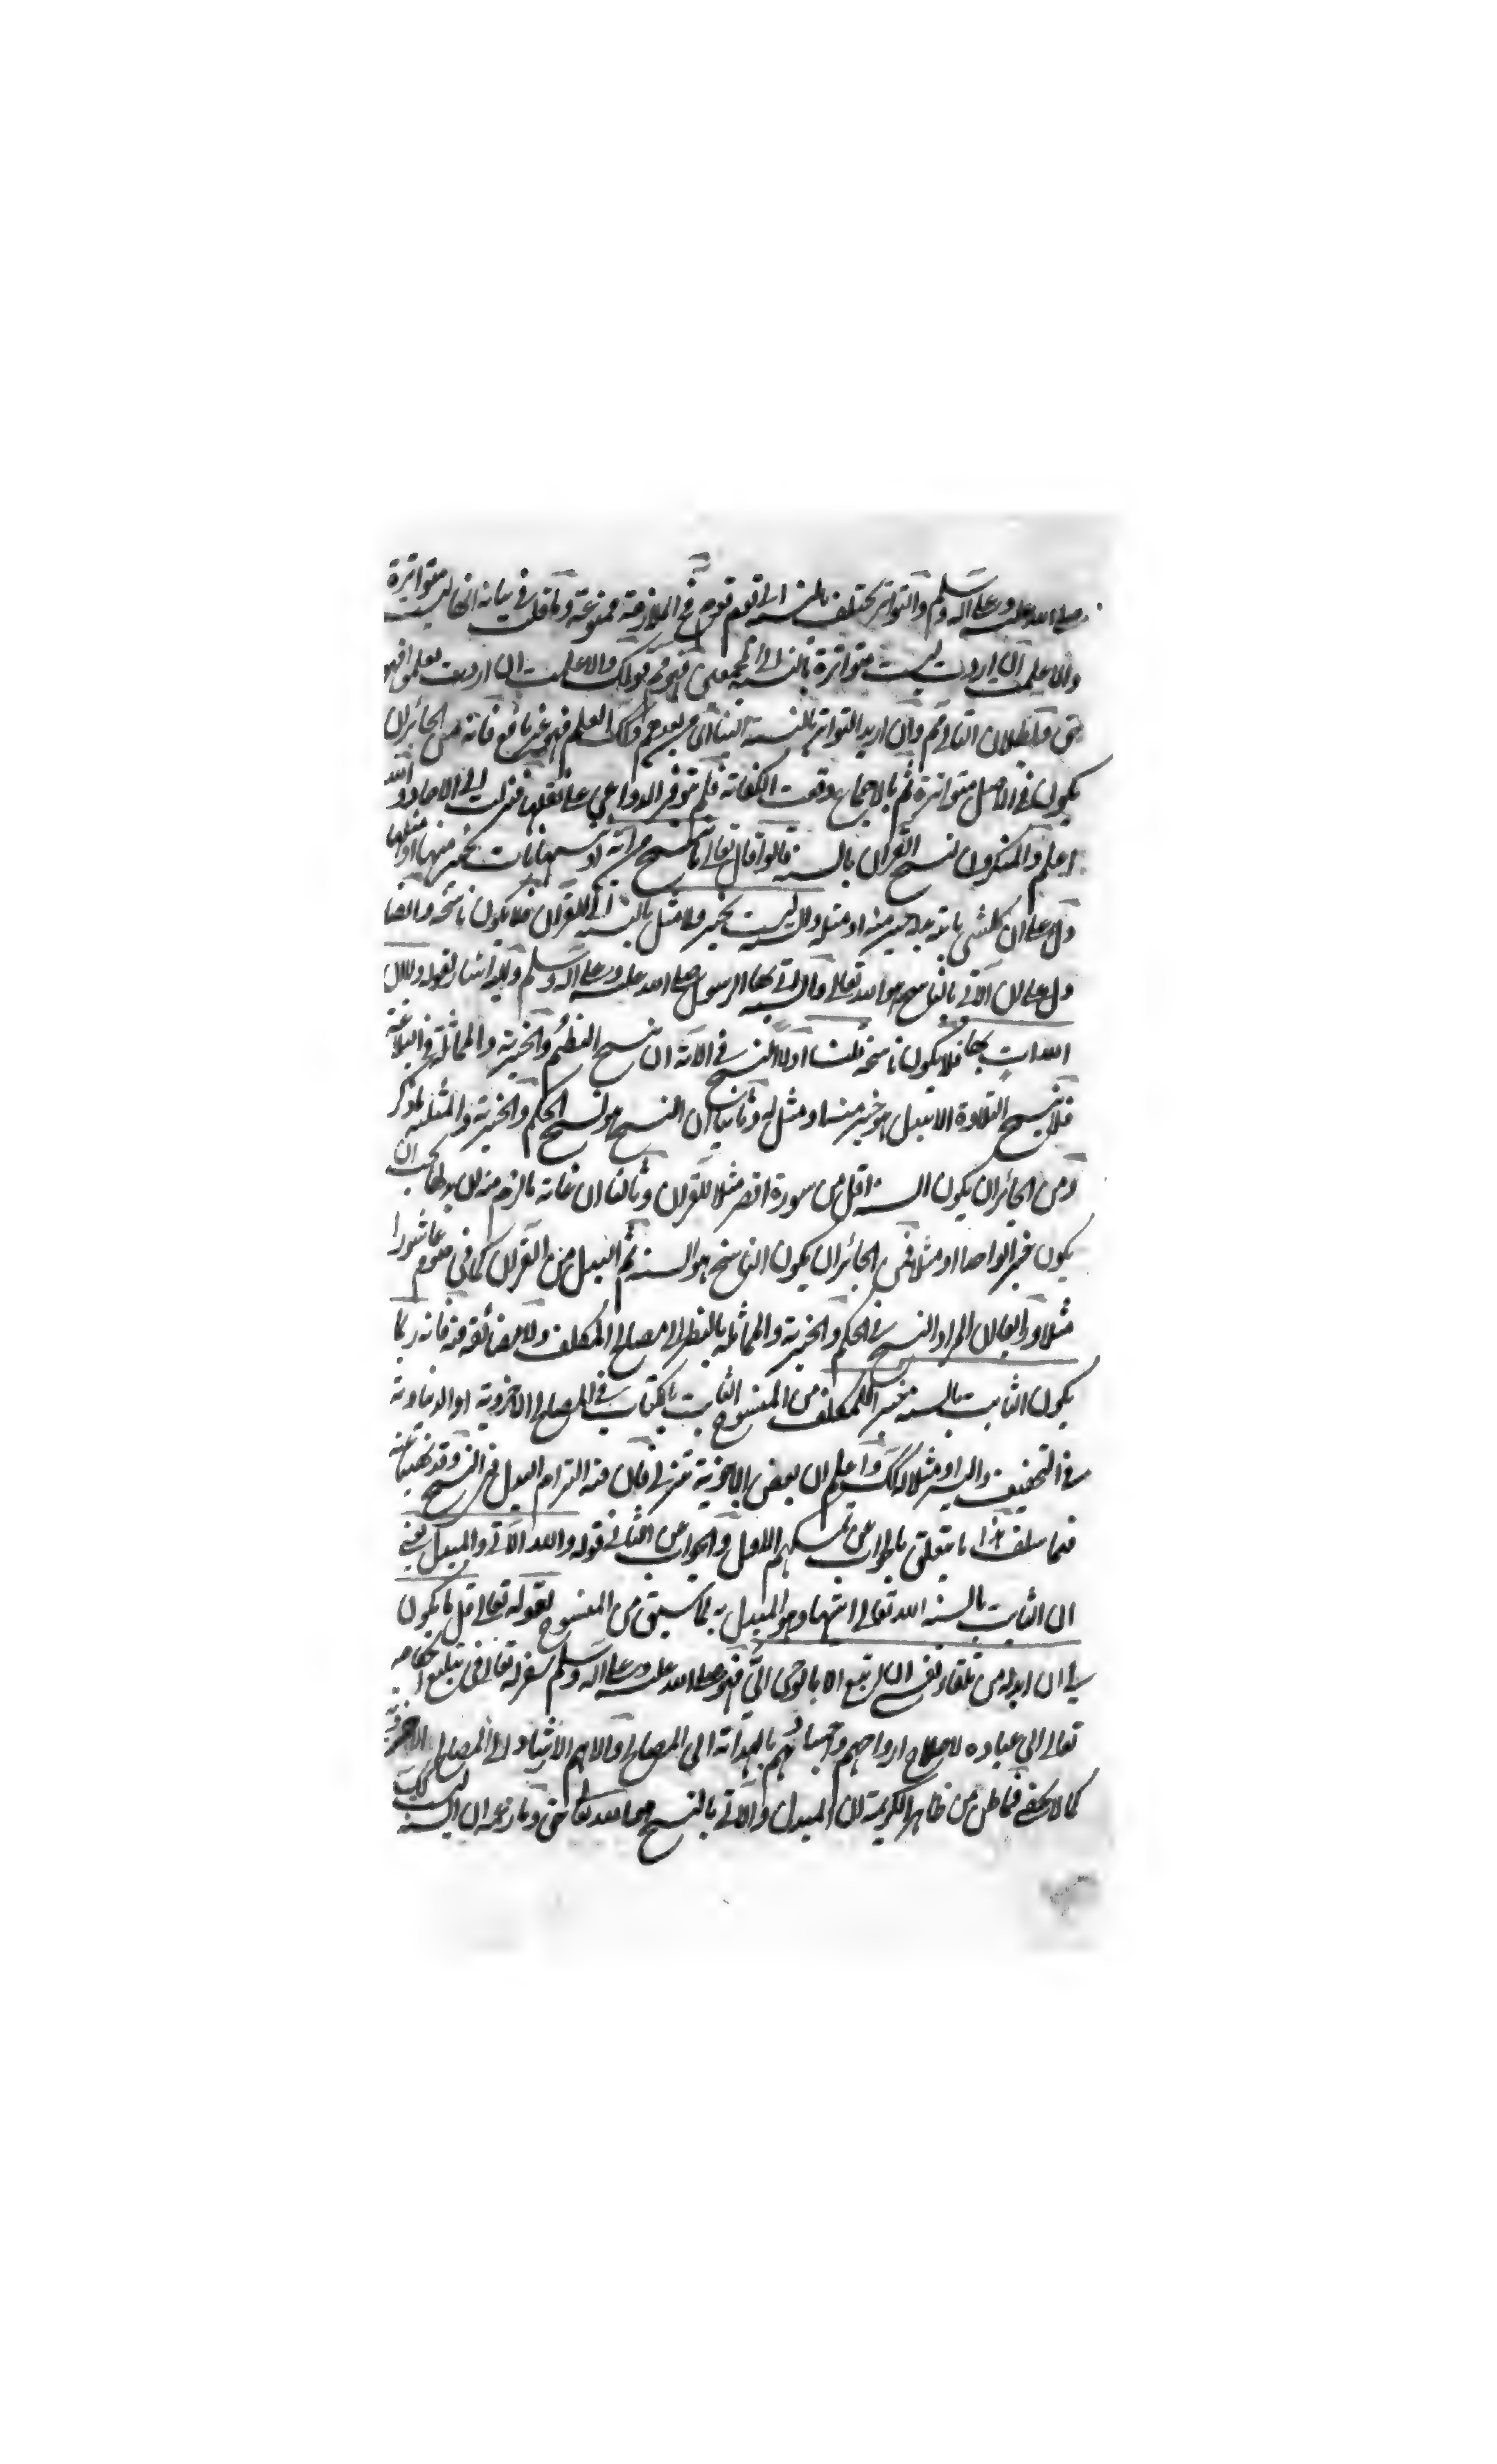 صلى الله عليه وعلى اله وسلم والتواتر يختلف بالنسبة الى قوم قوم فح الملازمة ممنوعة وما قلت في بيانه انها ليست متواترة
والا علمت ان اردت ليست متواترة بالنسبة الى فهو مم قولك والا علمت ان اردت فهو
حق وبطلان التالي مم وان اريد التواتر بالنسبة الينا من بعدهم وكك العلم فهو غير نافع فانه من الجائز ان
يكون في الاصل متواترة ثم بالاجماع وقعت الكفاية فلم تتوفر الدواعي على نقلها فنزلت الى الاحاد والله
اعلم والمنكرون نسخ القران بالسنة قالوا قال تعالى ما ننسخ من اية او ننسها نات بخير منها او مثلها
دل على ان كلشي ياته بدله خير منه او مثله والسنة ليست بخير ولا مثل بالنسبة الى القران فلا يكون ناسخه وايضا
دل على ان الاتي بالناسخ هو الله تعالى والسنة اتي بها الرسول صلى الله عليه وعلى اله وسلم واليه اشار بقوله ولان
الله ات بها فلا يكون ناسخه قلنا اولا النسخ في الاية ان ينسخ النظم والخيرية والمماثلة في البلاغة
فلا ينسخ التلاوة الا ببدل هو خير منها او مثل له وثانيا ان النسخ هو نسخ الحكم والخيرية والمثلية لما ذكر
ومن الجائز ان يكون السنة اقل من سورة اقصر مثلا للقران وثالثا ان غاية ما لزم منه ان بدلها يجب ان
يكون خيرا لواحد او مثلا فمن الجائز ان يكون الناسخ هو السنة ثم البدل من القران كما في صوم عاشورا
مثلا ورابعا ان المراد النسخ في الحكم والخيرية والمماثلة بالنظر الى مصالح المكلف ولا مضائقة فيه فانه ربما
يكون الثابت بالسنة خيرا للمكلف من المنسوخ الثابت بالكتاب في المصالح الاخروية او الدنياوية
في التخفيف واليسر او مثلا له كك واعلم ان بعض الاجوبة تنزلي فان فيه التزام البدل في النسخ وقد نفينا عنه
فيما سلف هذا ما يتعلق بالجواب عن تمسكهم الاول والجواب عن الثاني قوله والله الاتي والمبدل يعني
ان الثابت بالسنة الله تعالى اتي بها وهو المبدل به لما سبق من المنسوخ لقوله تعالى قل ما يكون
لي ان ابدله من تلقاء نفسي ان اتبع الا ما يوحى الي فهو صلى الله عليه وعلى اله وسلم سفير له تعالى في تبليغ احكامه
تعالى الى عباده لاصلاح ارواحهم واجسادهم بالهداية الى المصالح والاهم الارشاد الى المصالح الاخروية
كما لا يخفى فما ظن من ظاهر الكريمة ان المبدل والاتي بالنسخ هو الله تعالى حق وما زعم ان السنة ليست كك